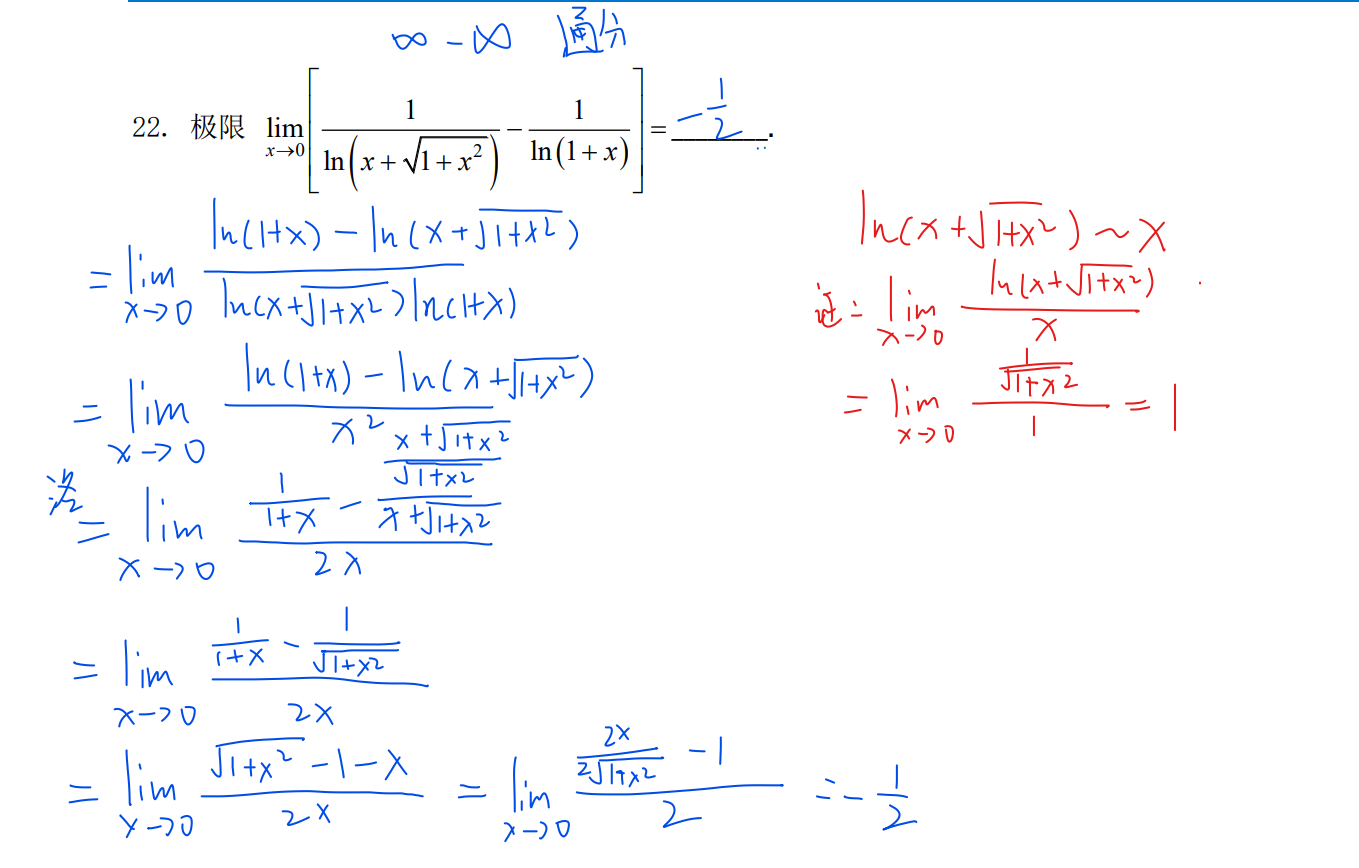 ∞ - ∞ 通分
22. 极限 lim_{x→0} [ 1/ln(x+√(1+x²)) − 1/ln(1+x) ] = -1/2 .
= lim_{x→0} (ln(1+x) − ln(x+√(1+x²))) / (ln(x+√(1+x²)) ln(1+x))
= lim_{x→0} (ln(1+x) − ln(x+√(1+x²))) / x²
洛
= lim_{x→0} (1/(1+x) − ((x+√(1+x²))/√(1+x²))/(x+√(1+x²))) / 2x
= lim_{x→0} (1/(1+x) − 1/√(1+x²)) / 2x
= lim_{x→0} (√(1+x²) −1−x) / 2x = lim_{x→0} (2x/(2√(1+x²)) − 1) / 2 = −1/2
ln(x+√(1+x²)) ~ x
证: lim_{x→0} ln(x+√(1+x²)) / x
= lim_{x→0} (1/√(1+x²)) / 1 = 1